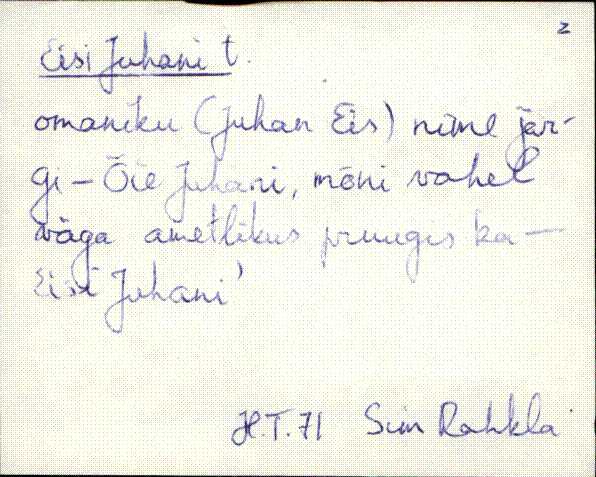 2
Eisi Juhani t.
omaniku (Juhan Eis) nime jär-
gi – Õie Juhani, mõni vahel
väga ametlikus pruugis ka –
Eisi Juhani'
H.T. 71 Sim Rahkla